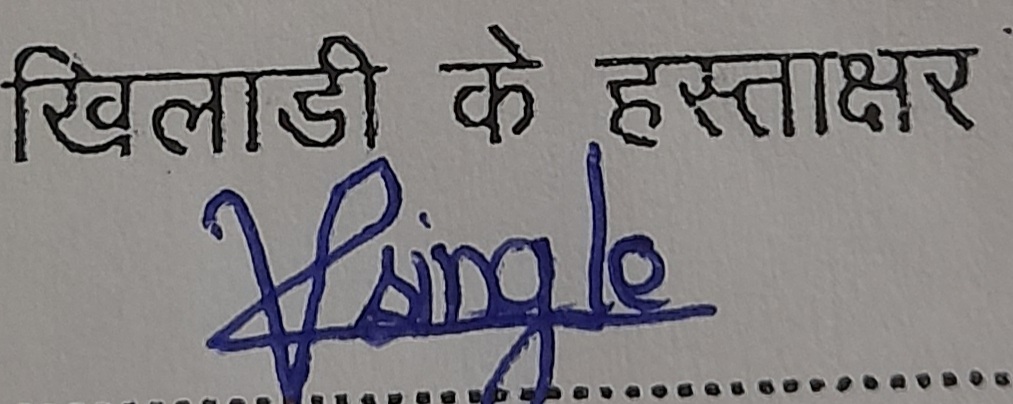 खिलाडी के हस्ताक्षर
Vsingle